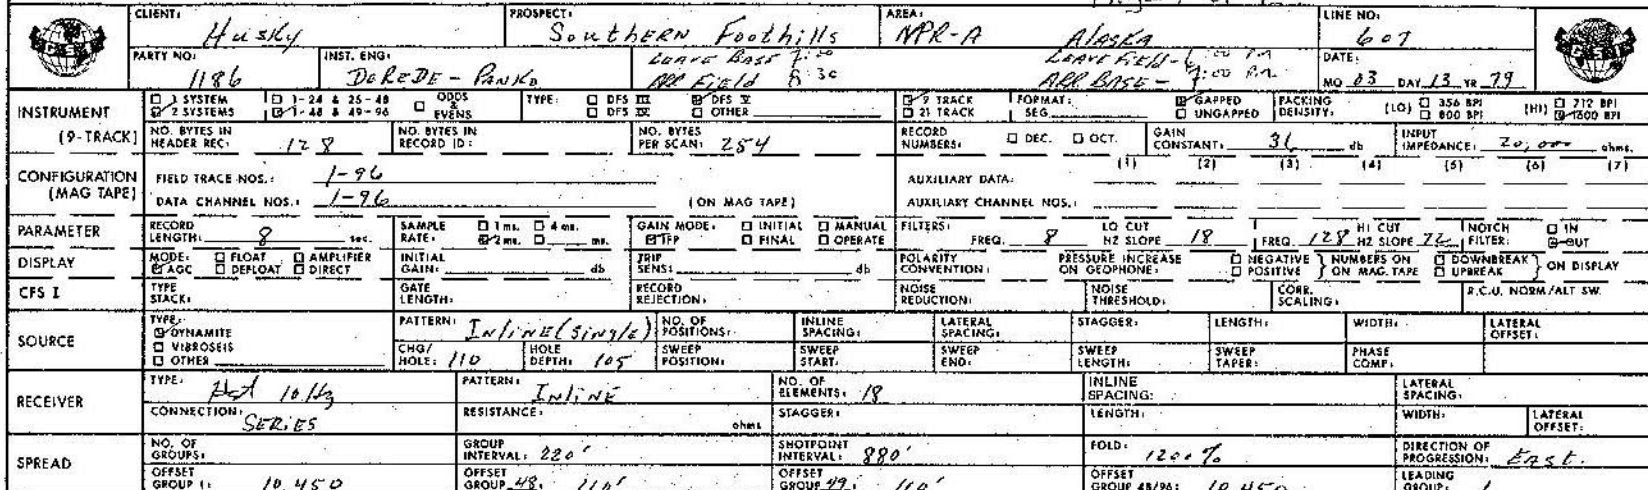 CLIENT: Husky PROSPECT: Southern Foothills AREA: NPR-A Alaska LINE NO: 607
PARTY NO: 1186 INST. ENG: DeREDE - Panko Leave Base 7:00 Leave Field - 6:00 P.M. DATE:
ARR Field 8:30 ARR. Base - 7:00 P.M. MO 03 DAY 13 YR 79
GSI
INSTRUMENT (9-TRACK)
1 SYSTEM 1-24 & 25-48 ODDS & EVENS TYPE: DFS III DFS V 9 TRACK FORMAT: GAPPED PACKING (LO) 356 BPI (HI) 712 BPI
2 SYSTEMS 1-48 & 49-96 DFS IV OTHER 21 TRACK SEG UNGAPPED DENSITY: 800 BPI 1600 BPI
NO. BYTES IN HEADER REC: 128 NO. BYTES IN RECORD ID: NO. BYTES PER SCAN: 254 RECORD NUMBERS: DEC. OCT. GAIN CONSTANT: 36 db INPUT IMPEDANCE: 20,000 ohms.
CONFIGURATION (MAG TAPE)
(1) (2) (3) (4) (5) (6) (7)
FIELD TRACE NOS.: 1-96 AUXILIARY DATA:
DATA CHANNEL NOS.: 1-96 (ON MAG TAPE) AUXILIARY CHANNEL NOS.:
PARAMETER RECORD LENGTH: 8 sec. SAMPLE RATE: 1 ms. 4 ms. 2 ms. ms. GAIN MODE: INITIAL MANUAL IFP FINAL OPERATE FILTERS: LO CUT FREQ. 8 HZ SLOPE 18 HI CUT FREQ. 128 HZ SLOPE 72 NOTCH FILTER: IN OUT
DISPLAY MODE: FLOAT AMPLIFIER AGC DEFLOAT DIRECT INITIAL GAIN: db TRIP SENS: db POLARITY CONVENTION: PRESSURE INCREASE ON GEOPHONE: NEGATIVE POSITIVE NUMBERS ON MAG. TAPE DOWNBREAK UPBREAK ON DISPLAY
CFS I TYPE STACK: GATE LENGTH: RECORD REJECTION: NOISE REDUCTION: NOISE THRESHOLD: CORR. SCALING: R.C.U. NORM/ALT SW.
SOURCE TYPE: DYNAMITE VIBROSEIS OTHER
PATTERN: Inline (single) NO. OF POSITIONS: INLINE SPACING: LATERAL SPACING: STAGGER: LENGTH: WIDTH: LATERAL OFFSET:
CHG/HOLE: 110 HOLE DEPTH: 105 SWEEP POSITION: SWEEP START: SWEEP END: SWEEP LENGTH: SWEEP TAPER: PHASE COMP:
RECEIVER TYPE: 10 Hz PATTERN: Inline NO. OF ELEMENTS: 18 INLINE SPACING: LATERAL SPACING:
CONNECTION: SERIES RESISTANCE: ohms STAGGER: LENGTH: WIDTH: LATERAL OFFSET:
SPREAD NO. OF GROUPS: GROUP INTERVAL: 220' SHOTPOINT INTERVAL: 880' FOLD: 1200% DIRECTION OF PROGRESSION: East.
OFFSET GROUP 1: 10,450 OFFSET GROUP 48: 110' OFFSET GROUP 49: 110' OFFSET GROUP 48/96: 10,450 LEADING GROUP: 1